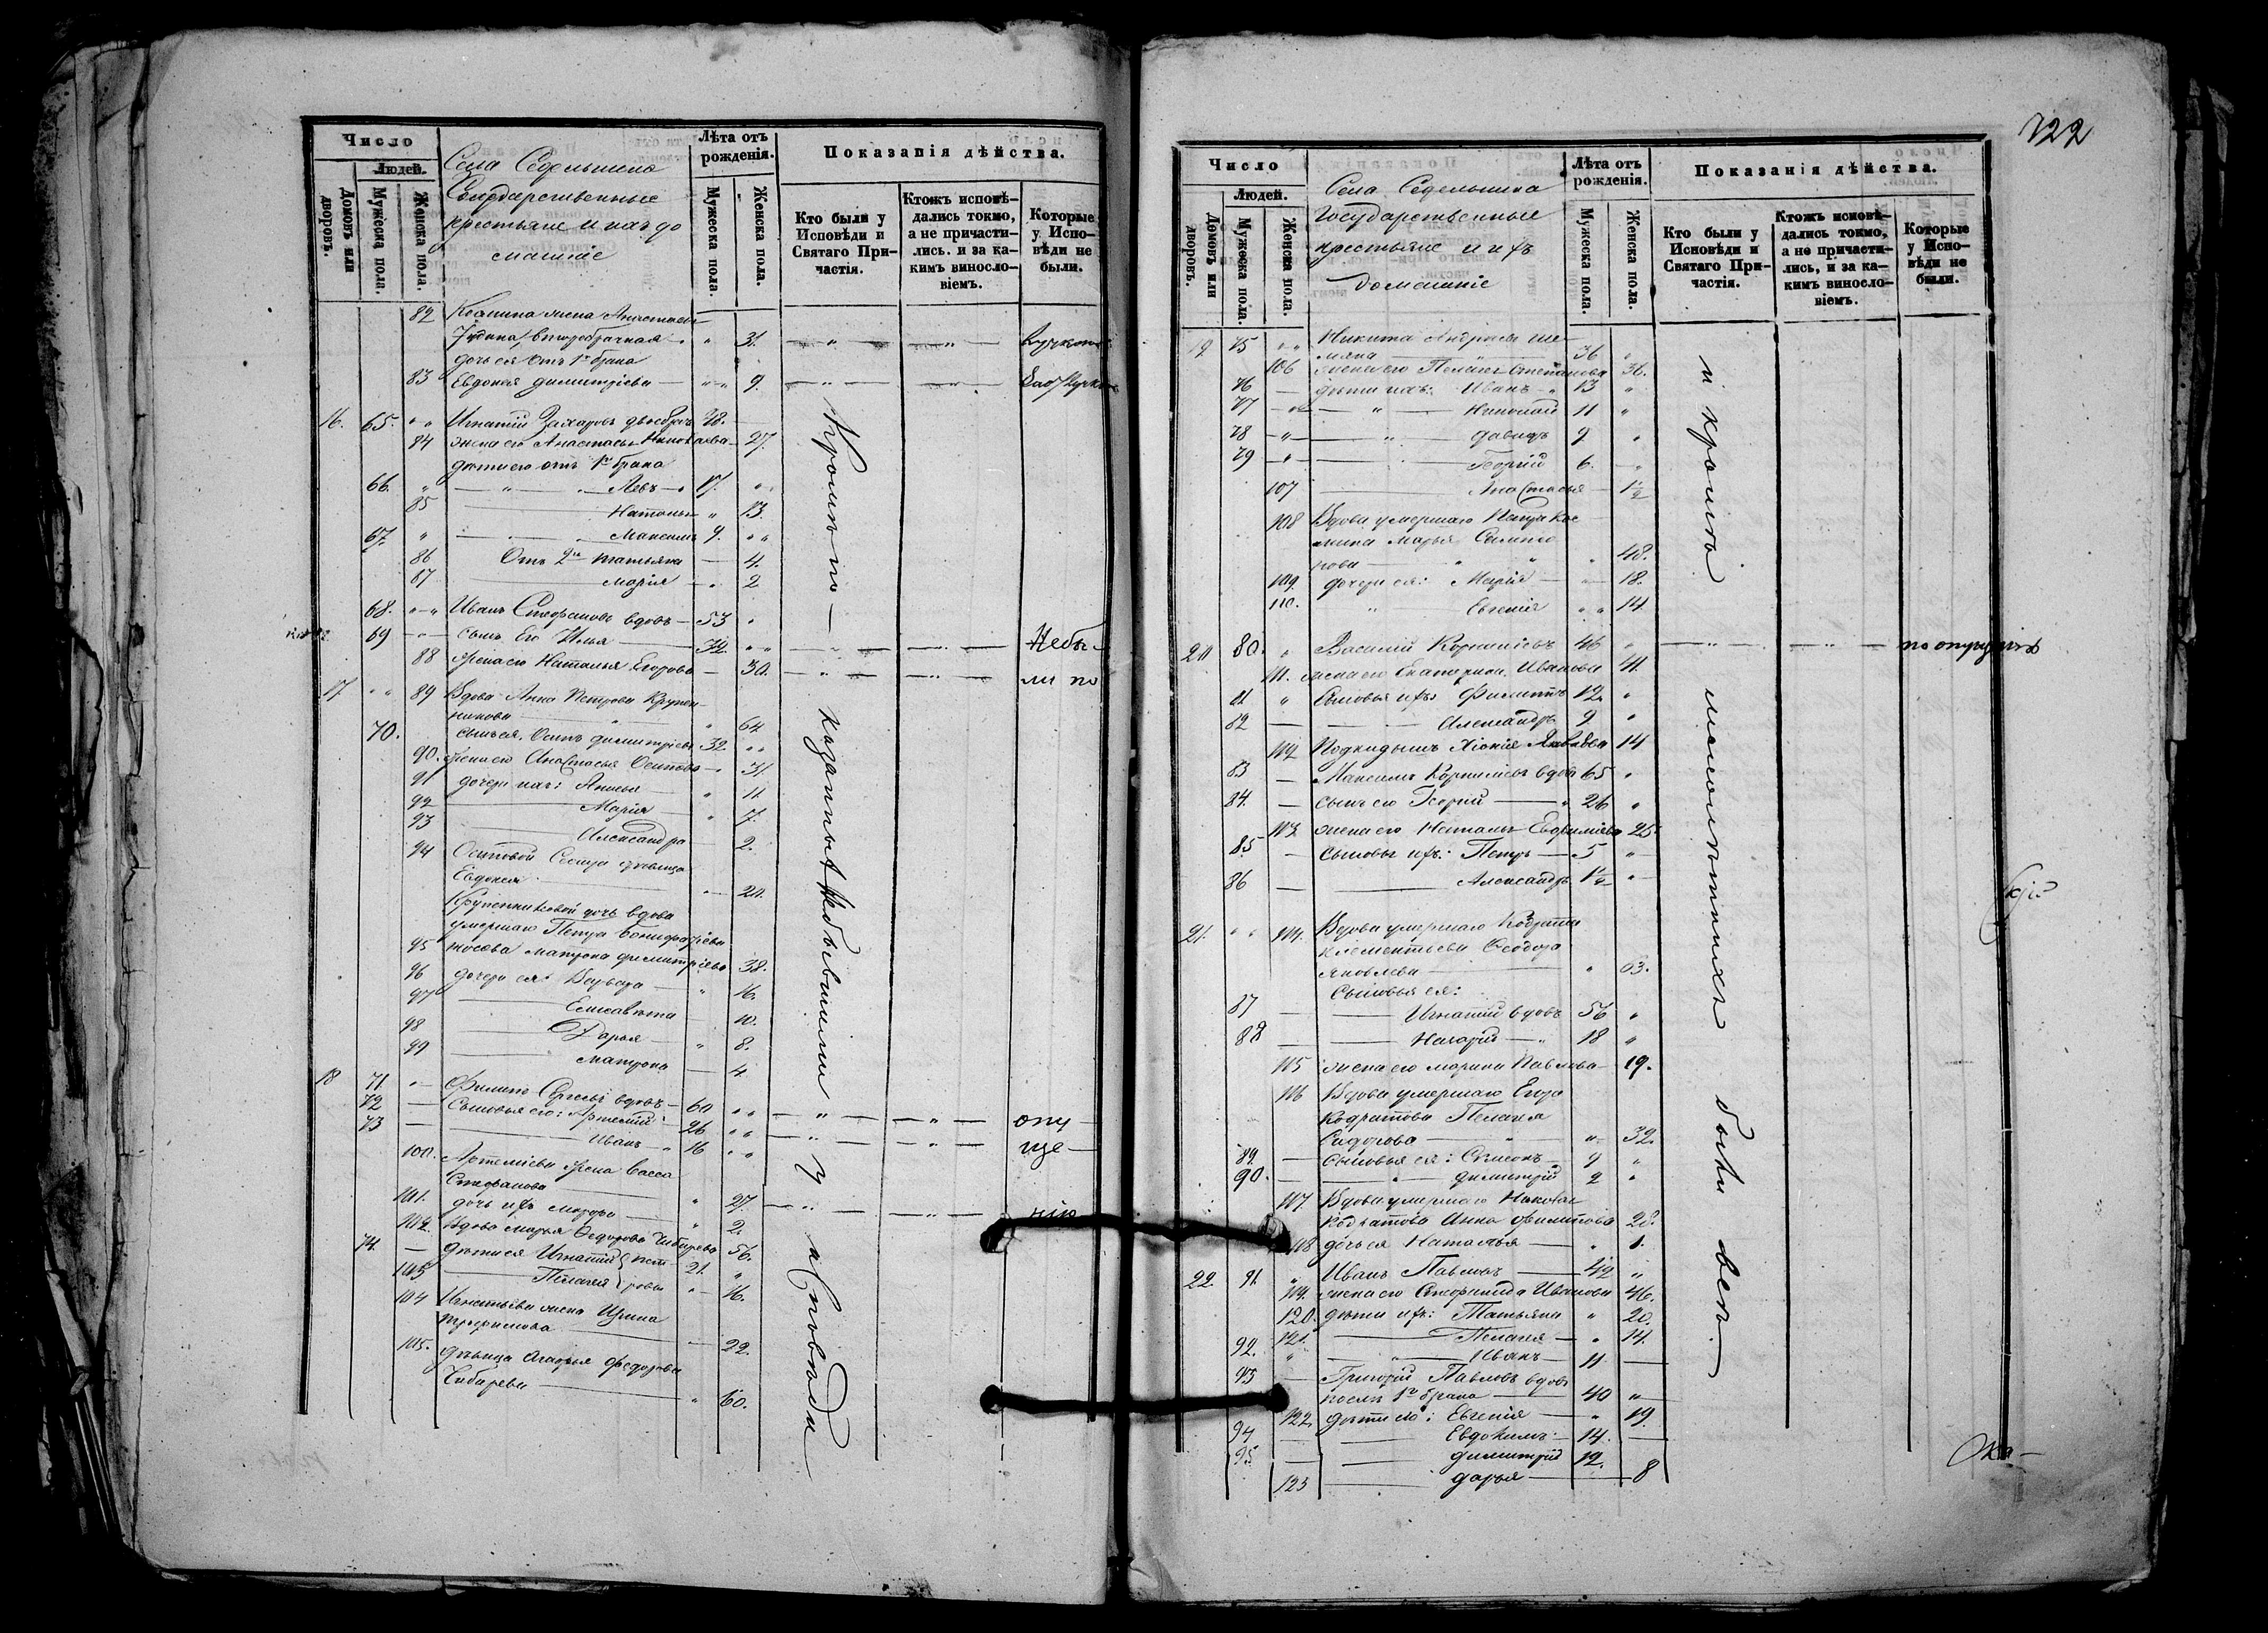 Число
Людей.
Домовъ или дворовъ.
Мужеска пола.
Женска пола.
Села Седельшена
Государственные
крестьяне и ихъ до
машніе
Лѣта отъ рожденія.
Мужеска пола.
Женска пола.
Показанія дѣйства.
Кто были у Исповѣди и Святаго Причастія.
Ктожъ исповѣдались токмо, а не причастились. и за какимъ винословіемъ.
Которые у Исповѣди не были.
82 жена Анастасья
второбрачная " 31.
дочь ея отъ 1го брака
83 Евдокея Димитріева " 9.
16. 65. Игнатій Захаровъ 48.
84 жена его Анастасья Николаева 27.
дѣти его отъ 1го брака
66. Левъ 17.
85 Наталья 13.
67. Максимъ 9.
86 Отъ 2го Татьяна 4.
87 Марія 2
68. Иванъ Стефановъ вдовъ 53
69 сынъ его Илья 32. Небы-
88 жена его Наталья Егорова 30. ли по
17. 89 Вдова Анна Петрова Крупен-
никова 64
70. сынъ ея Димитріевъ 32
90. жена его Анастасья Осипова 31.
91 дочери ихъ: 11.
92 Марія 7.
93 Александра 2.
94 дѣвица
Евдокея 20.
Крупенниковой дочь вдова
умершаго Петра
95 Матрона Димитріева 38.
96 дочери ея: Варвара 16.
97 Елисавета 10.
98 Дарья 8.
99 Матрона 4
18 71. Филипъ Сергеевъ вдовъ 60
72 Сыновья его: Артемій 26 опу-
73 Иванъ 16 ще-
100. Артеміева жена Васса
Стефанова 27.
101. дочь ихъ 2. нію
102. Вдова Марья Федорова Чибирева 56.
74. дѣти ея Игнатій 21.
103 Пелагея 16.
104 Игнатьева жена Ирина
Трофимова 22.
105. дѣвица Агафья Федорова
Чибирева 60.
Кромѣ по- казанныхъ небывшими у исповѣди
722
Число
Людей.
Домовъ или дворовъ.
Мужеска пола.
Женска пола.
Села Седельшена
Государственные
крестьяне и ихъ
домашніе
Лѣта отъ рожденія.
Мужеска пола.
Женска пола.
Показанія дѣйства.
Кто были у Исповѣди и Святаго Причастія.
Ктожъ исповѣдались токмо, а не причастились, и за какимъ винословіемъ.
Которые у Исповѣди не были.
19 75 Никита Андреевъ Ше-
мяка 36
106 жена его Степанова 36.
76 дѣти ихъ: Иванъ 13
77 Николай 11
78 Давидъ 9
79 Георгій 6.
107 Анастасья 1½
108 Вдова умершаго Петра
Марья
48.
109. дочери ея: Марія 18.
110. Евгенія 14
20 80. Василій Корниліевъ 46 по опущенію
111. жена его Екатерина Иванова 41.
81 Сыновья ихъ Филиппъ 12.
82 Александръ 9
112 Подкидышъ Хіонія Яковлева 14
83 Максимъ Корниліевъ вдовъ 65
84. сынъ его Георгій 26
113. жена его Наталья Евфиміева 25.
85 Сыновья ихъ: Петръ 5
86 Александръ 1½
21. 114. Вдова умершаго
Клементьева Феодора
Яковлева 63.
Сыновья ея:
87 Игнатій вдовъ 36
88 Назарій 18
115 жена его Марина Павлова 19.
116 Вдова умершаго Егора
Кодратова Пелагея
Сидорова 32.
89. Сыновья ея: 9
90. Димитрій 2
117. Вдова умершаго Николая
Кодратова Анна Филипова 28.
118 дочь ея Наталья 1.
22. 91. Иванъ Павловъ 42
119. жена его Иванова 46.
120. дѣти ихъ: Татьяна 20.
121. Пелагея 14.
92. Иванъ 11
93 Григорій Павловъ вдовъ
послѣ 1го брака 40
122 дѣти его: Евгенія 19.
94 Евдокимъ 14.
95 Димитрій 12.
123 Дарья 8
и кромѣ малолѣтнихъ были всѣ